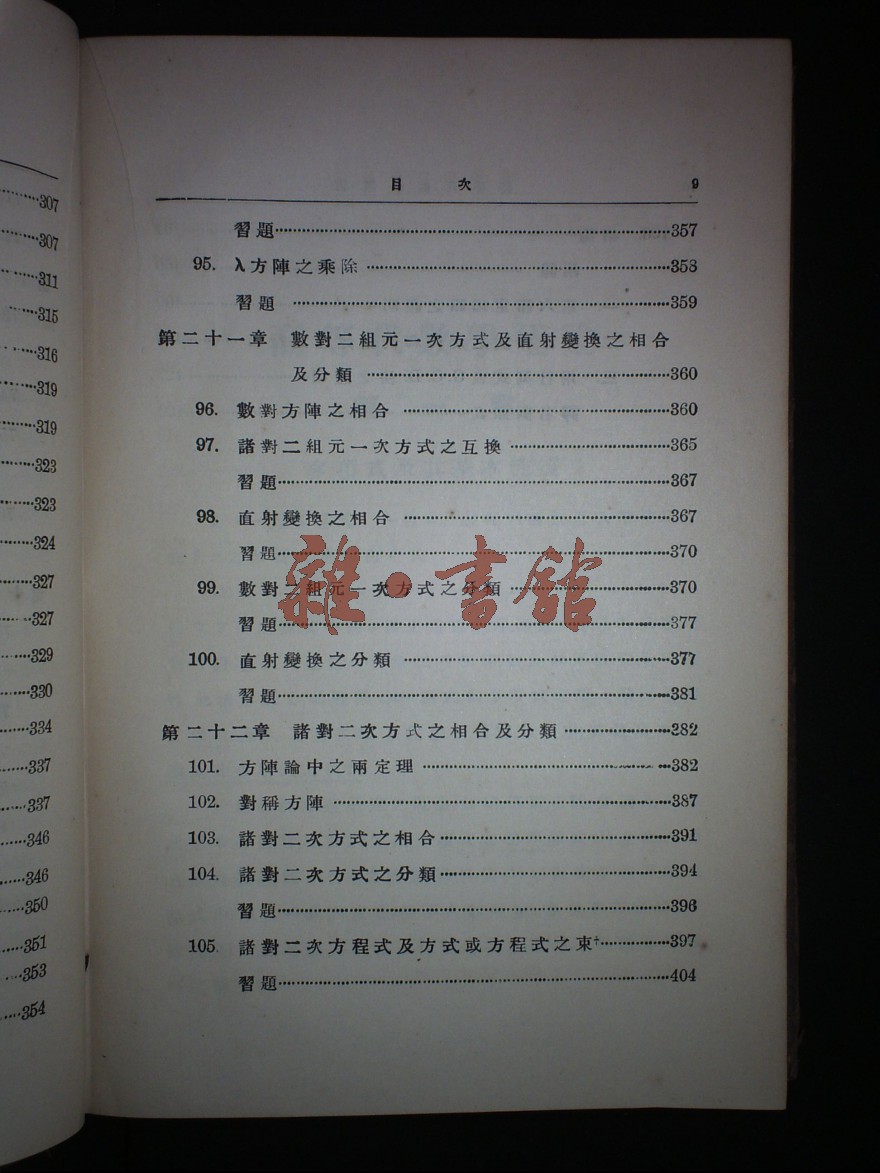 307
307
311
315
316
319
319
323
323
324
327
327
329
330
334
337
337
346
346
350
351
353
354
目 次 9
習題 357
95. λ方陣之乘除 358
習題 359
第二十一章 數對二組元一次方式及直射變換之相合
及分類 360
96. 數對方陣之相合 360
97. 諸對二組元一次方式之互換 365
習題 367
98. 直射變換之相合 367
習題 370
99. 數對二組元一次方式之分類 370
習題 377
100. 直射變換之分類 377
習題 381
第二十二章 諸對二次方式之相合及分類 382
101. 方陣論中之兩定理 382
102. 對稱方陣 387
103. 諸對二次方式之相合 391
104. 諸對二次方式之分類 394
習題 396
105. 諸對二次方程式及方式或方程式之束† 397
習題 404
雜·書館